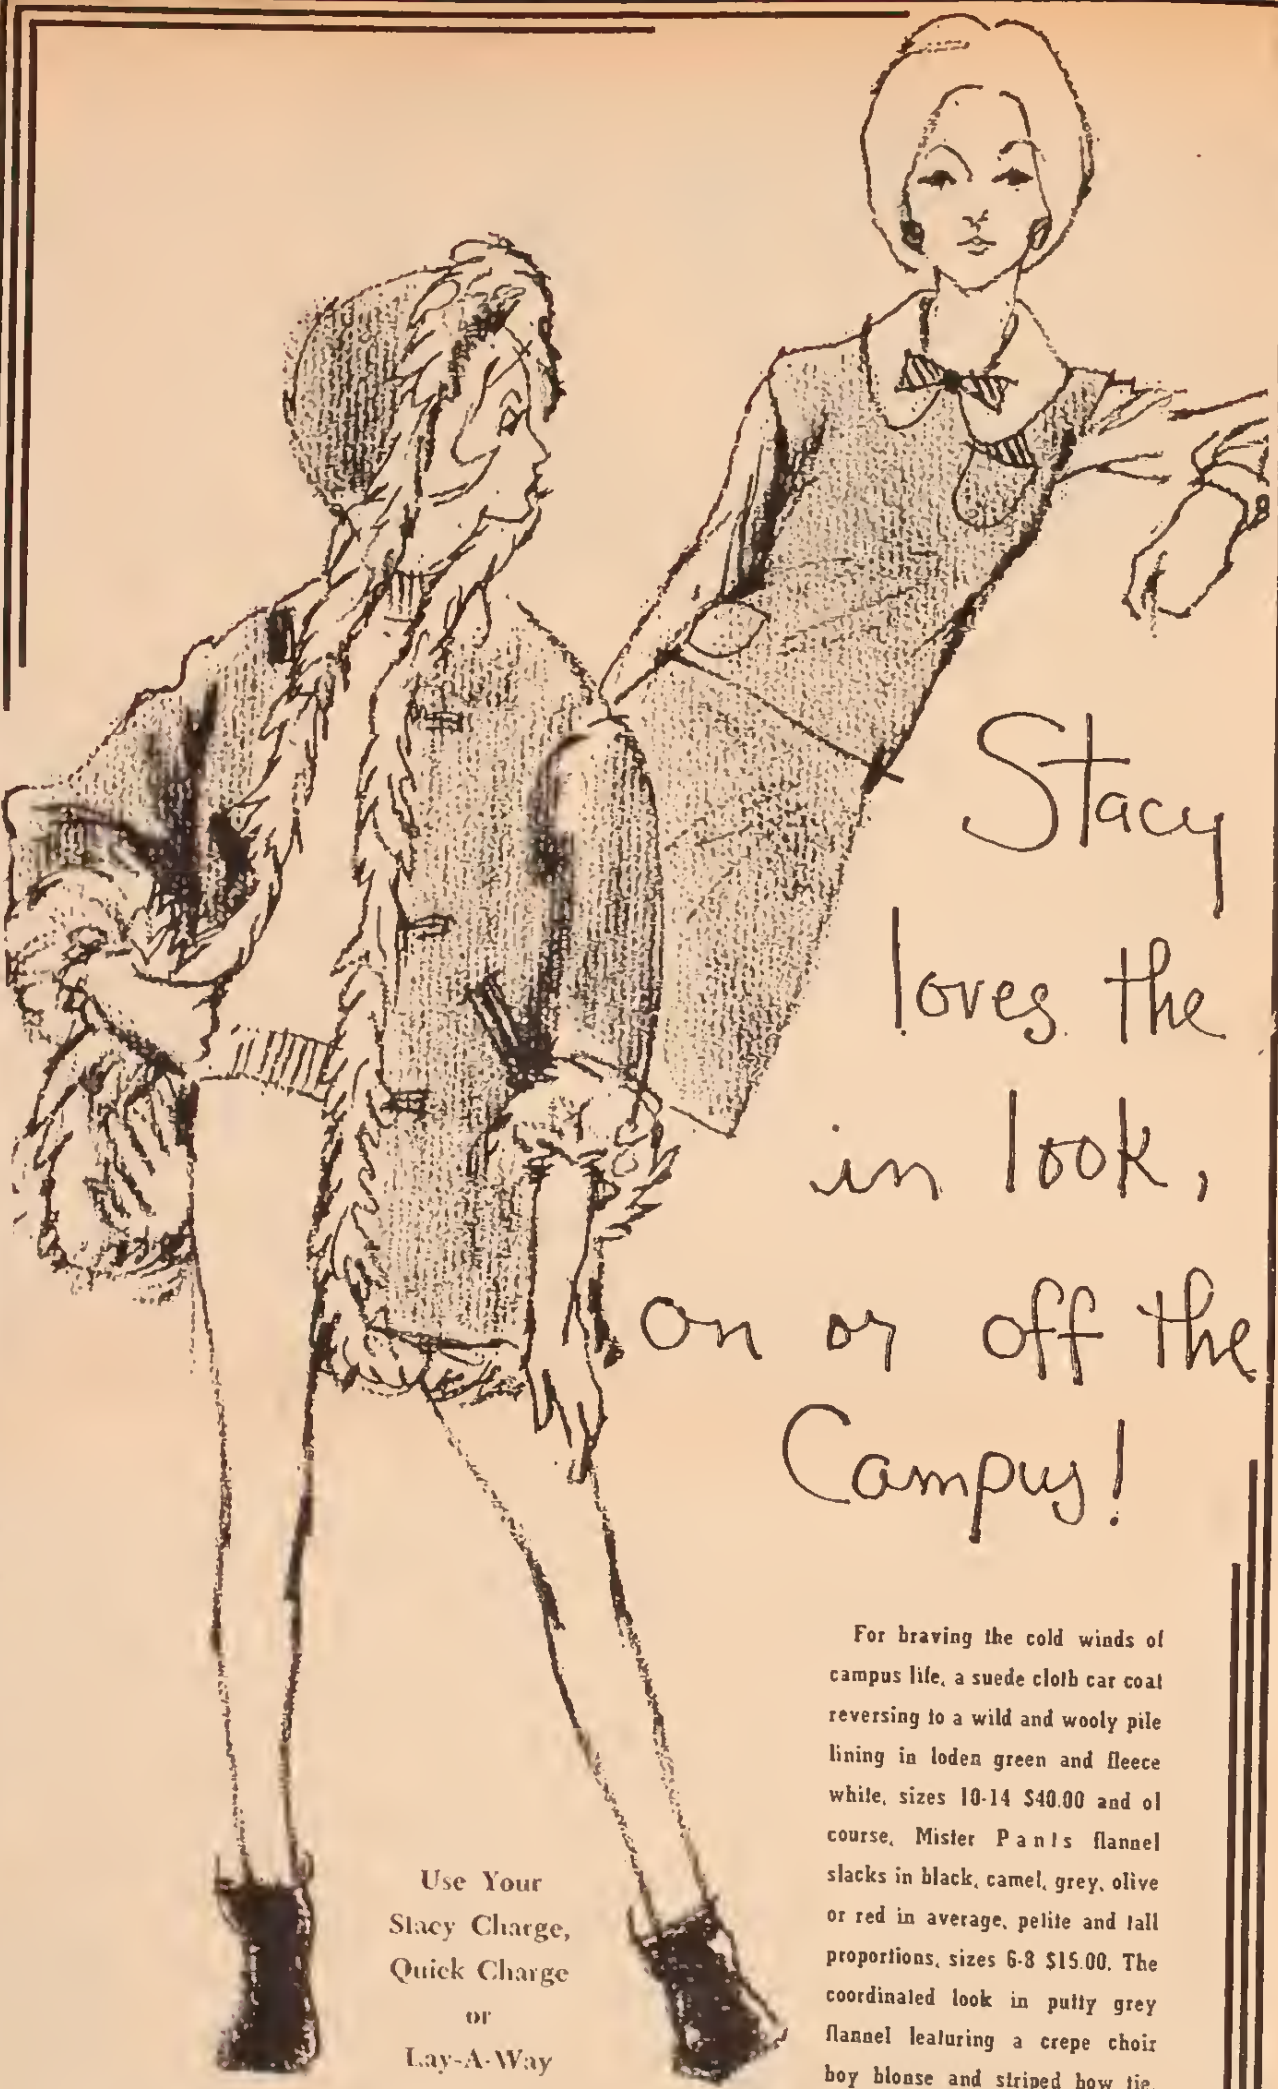 Stacy
loves the
in look,
on or off the
Campus!
For braving the cold winds of
campus life, a suede cloth car coat
reversing to a wild and wooly pile
lining in loden green and fleece
white, sizes 10-14 $40.00 and of
course, Mister Pants flannel
slacks in black, camel, grey, olive
or red in average, petite and tall
proportions, sizes 6-8 $15.00. The
coordinated look in putty grey
flannel featuring a crepe choir
boy blouse and striped bow tie,
Use Your
Stacy Charge,
Quick Charge
or
Lay-A-Way